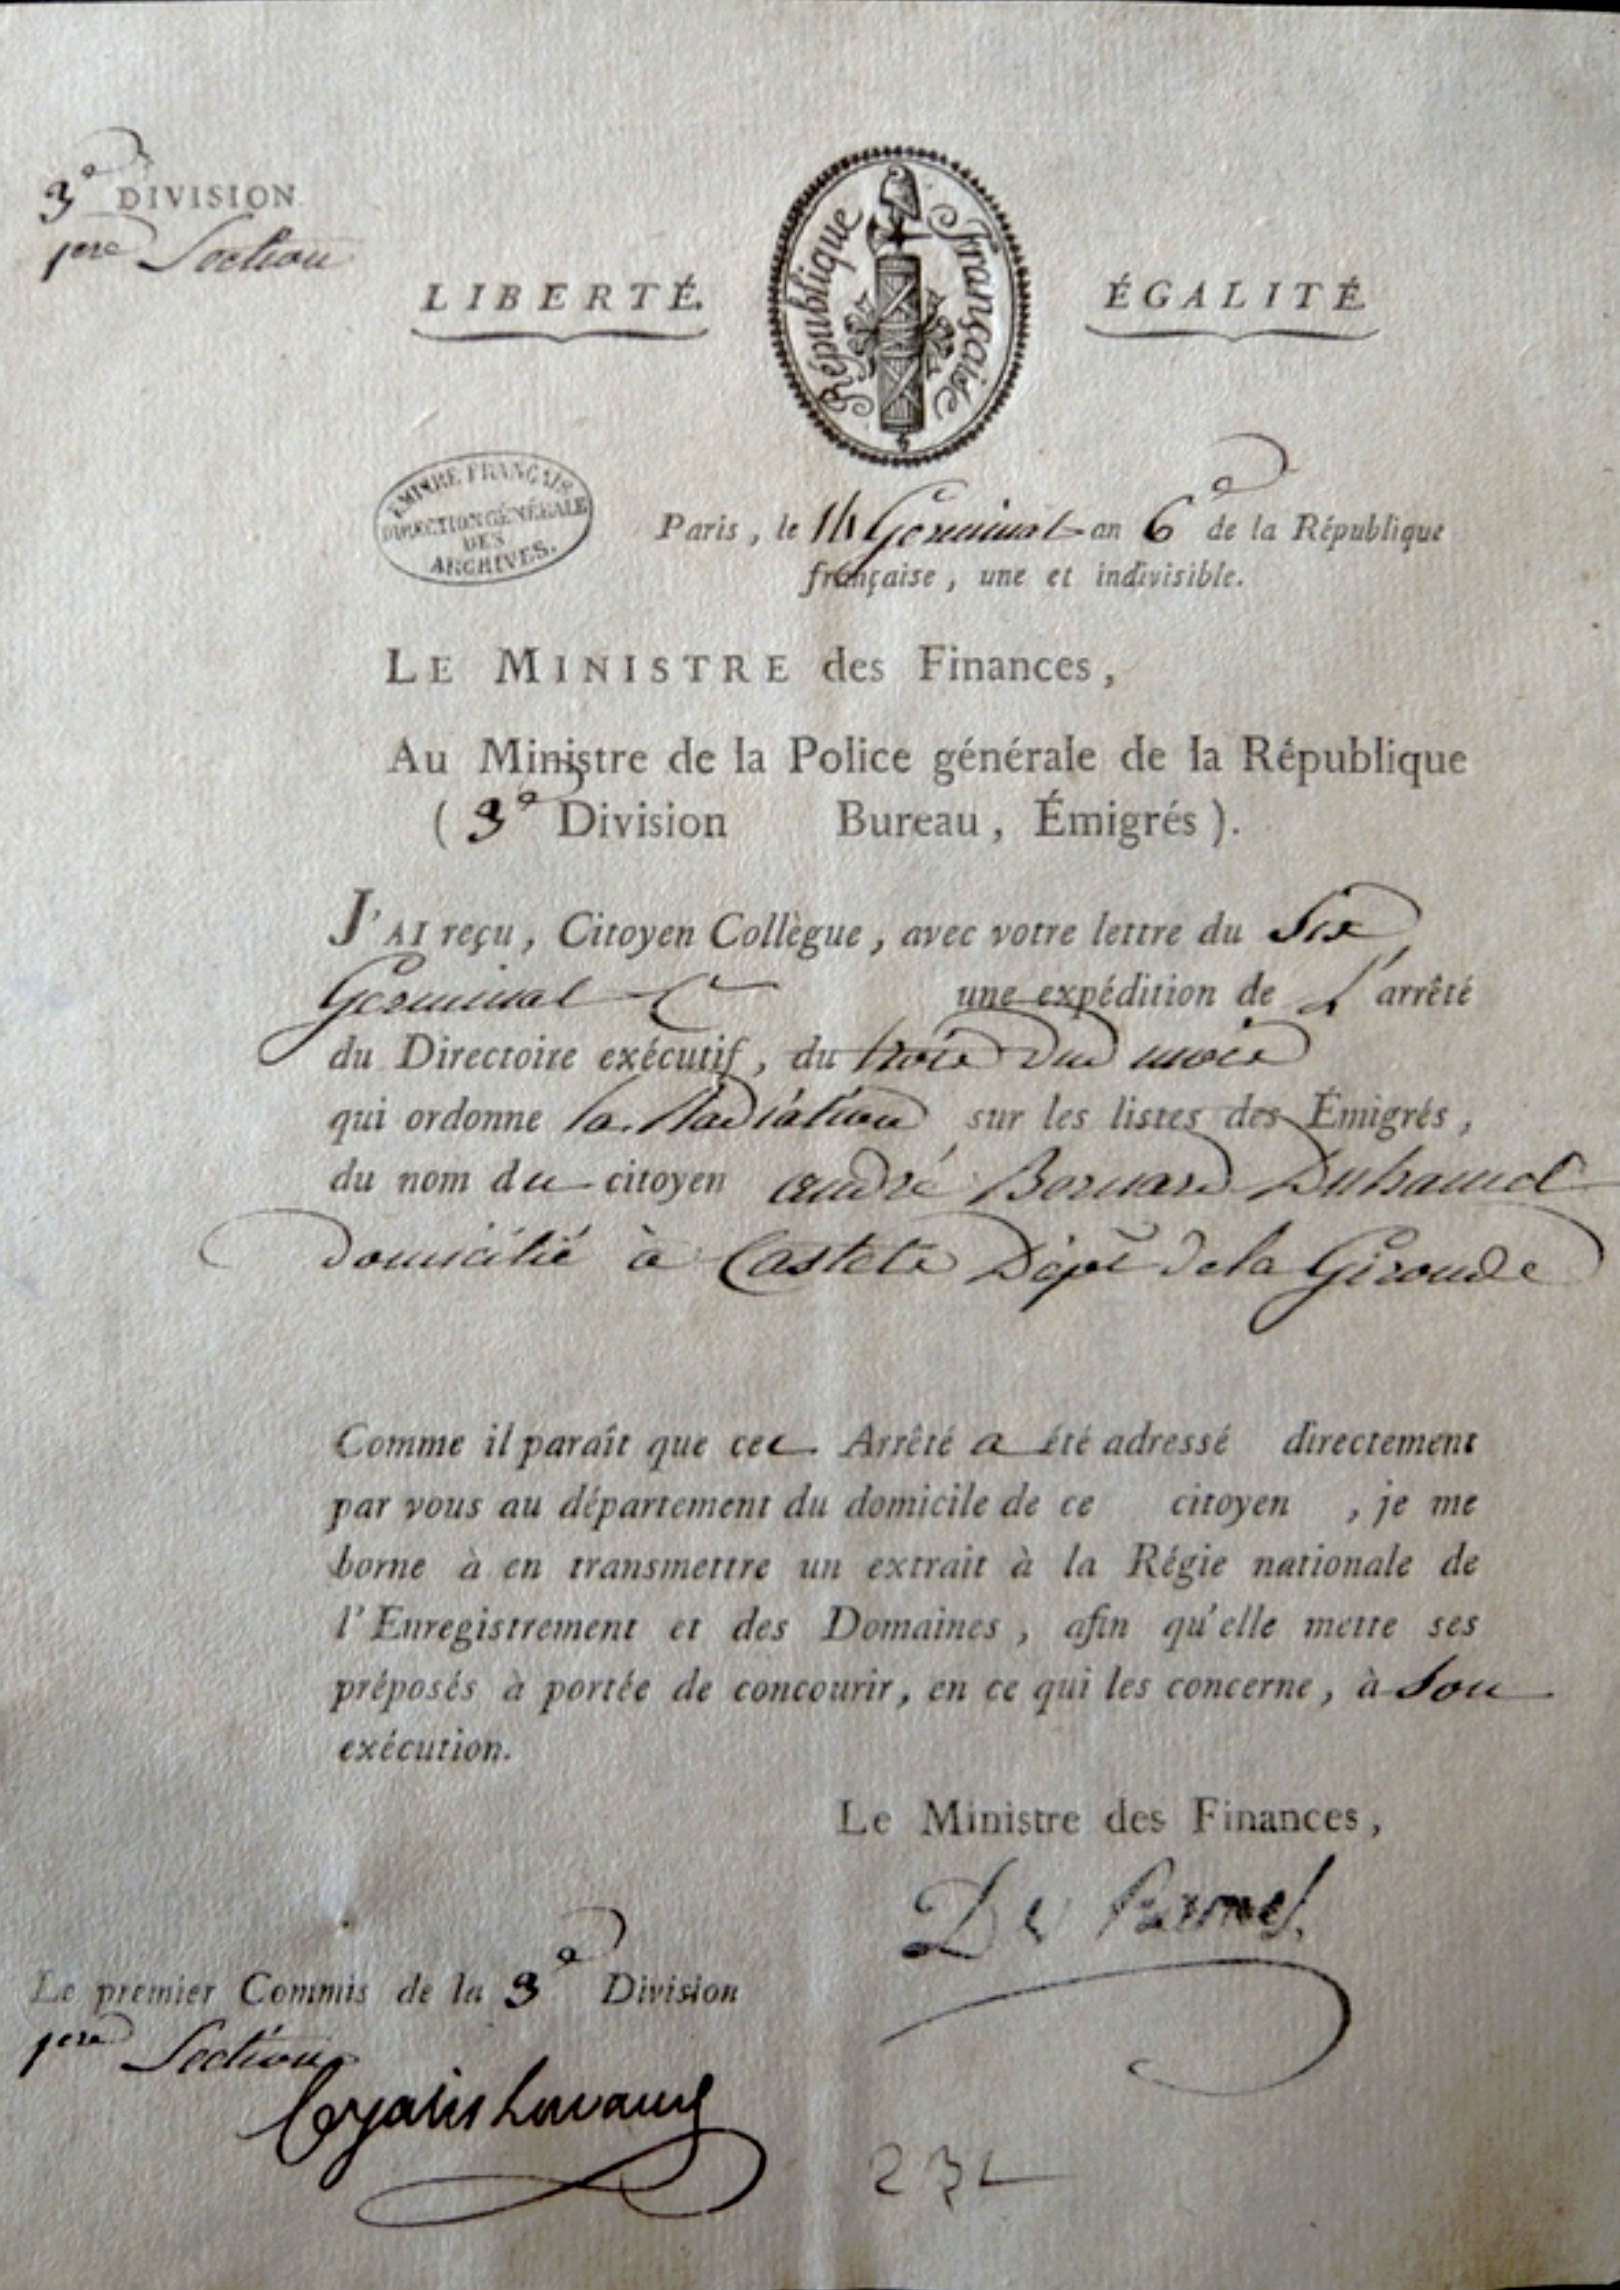 3e DIVISION
1ere Section
LIBERTÉ.
République Française
ÉGALITÉ
EMPIRE FRANÇAIS
DIRECTION GÉNÉRALE
DES
ARCHIVES.
Paris, le 14 Germinal an 6e de la République
française, une et indivisible.
LE MINISTRE des Finances,
Au Ministre de la Police générale de la République
( 3e Division Bureau, Émigrés ).
J'AI reçu, Citoyen Collègue, avec votre lettre du Six
Germinal une expédition de L'arrêté
du Directoire exécutif, du trois dud mois
qui ordonne la Radiation sur les listes des Émigrés,
du nom du citoyen andré Bernard Duhamel
domicilié à Castets Dépt de la Gironde
Comme il paraît que cet Arrêté a été adressé directement
par vous au département du domicile de ce citoyen , je me
borne à en transmettre un extrait à la Régie nationale de
l'Enregistrement et des Domaines, afin qu'elle mette ses
préposés à portée de concourir, en ce qui les concerne, à Son
exécution.
Le Ministre des Finances,
Le premier Commis de la 3e Division
1ere Section